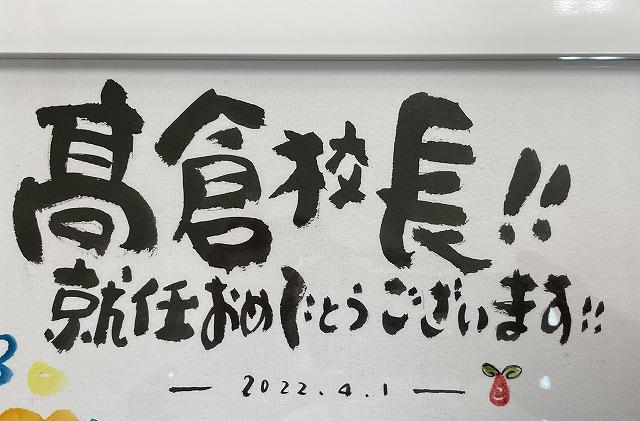 髙倉校長!!
就任おめじとうございます!!
— 2022.4.1 —